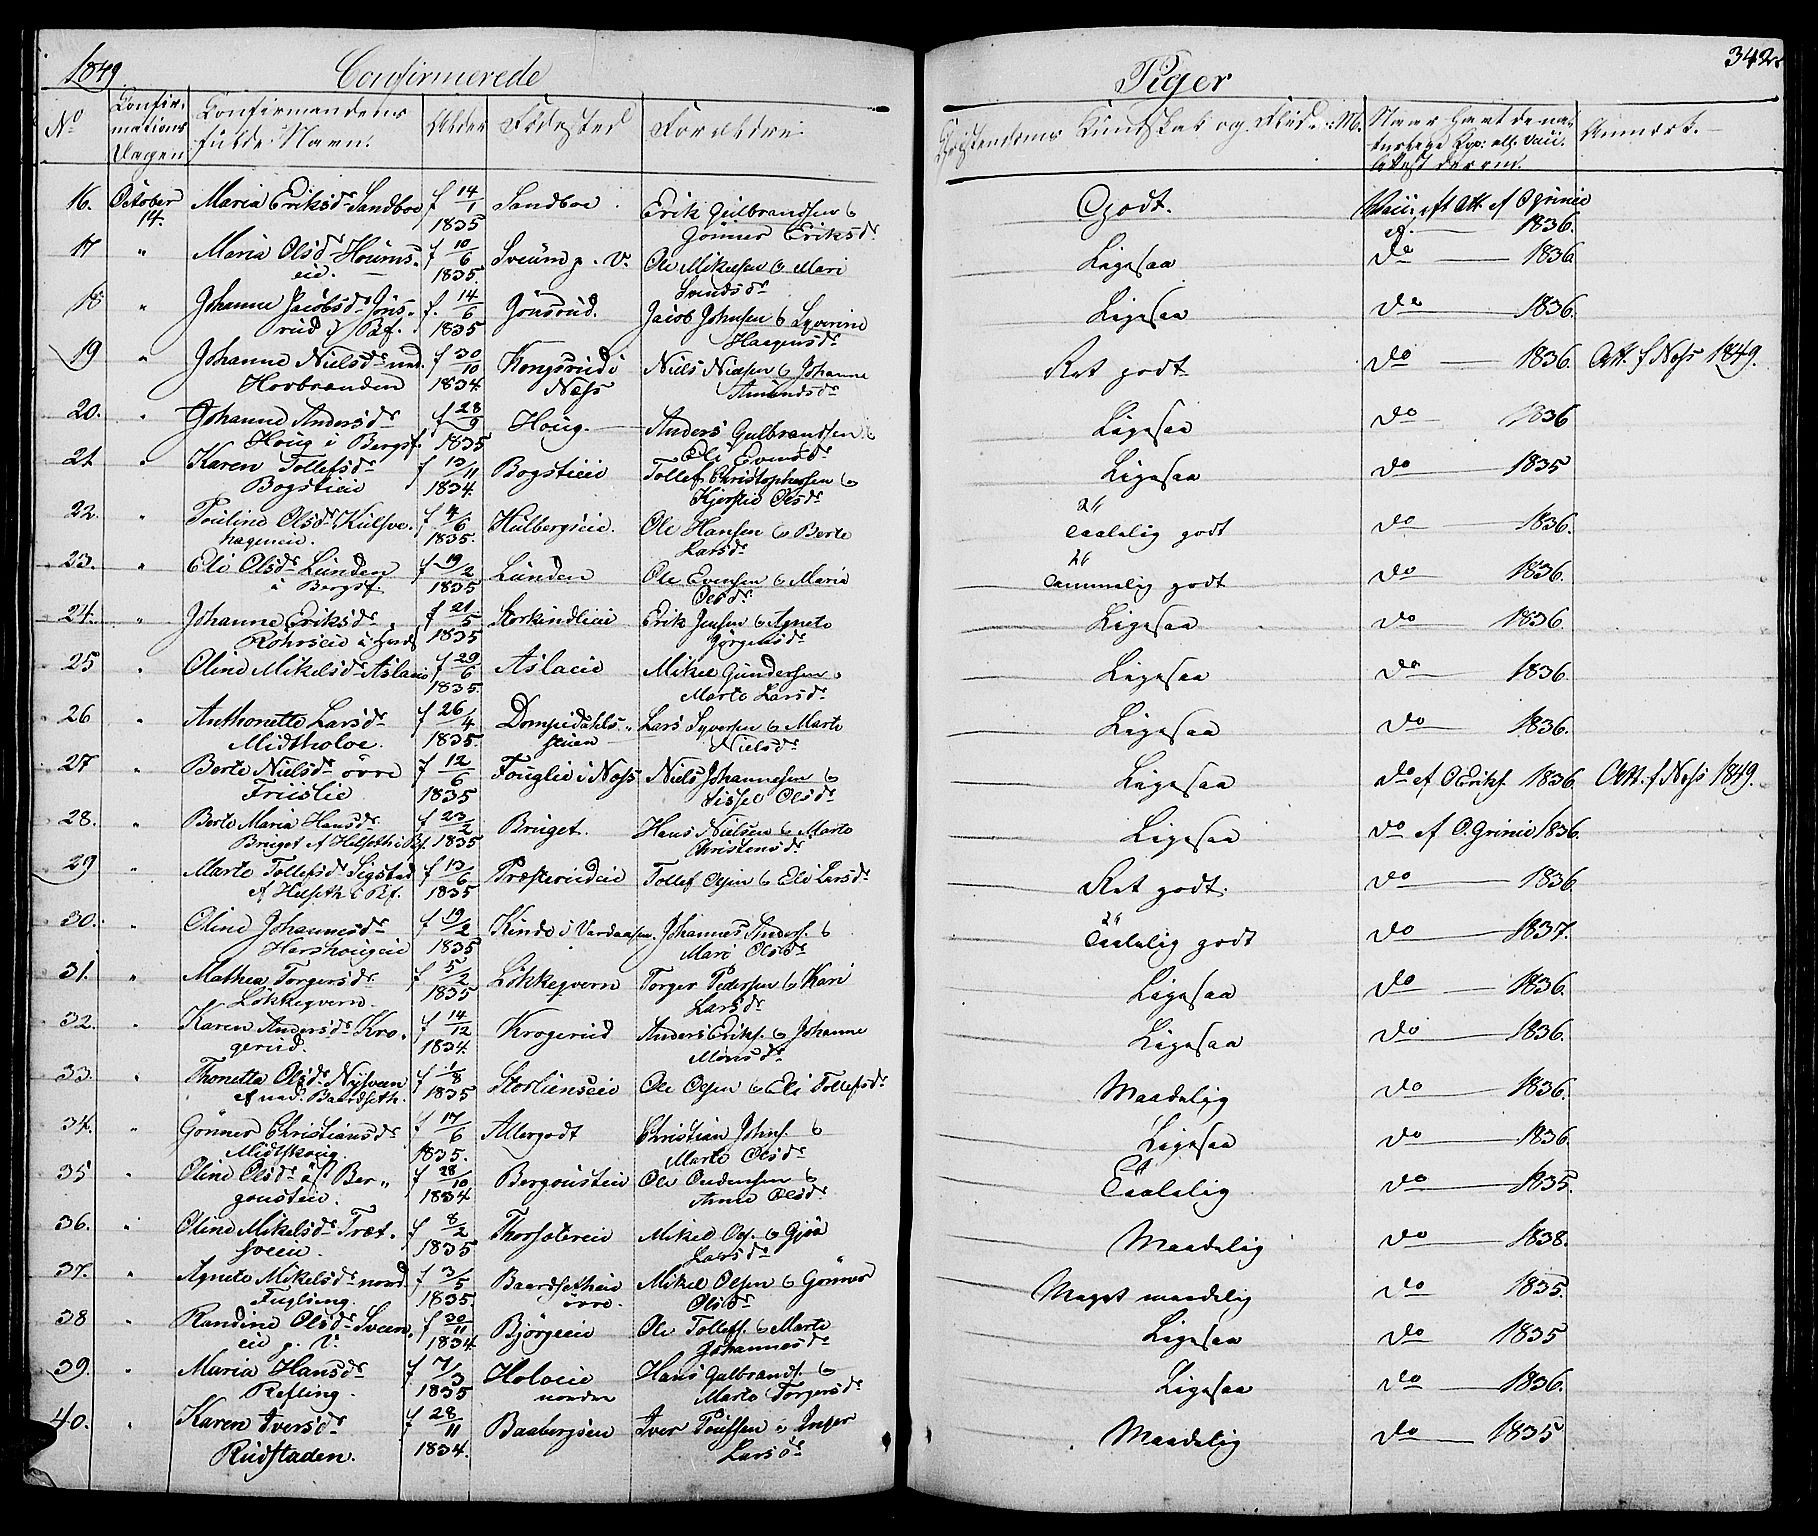 1849. Confirmerede Piger 342.
No Confirmations Dagen Confirmandens fulde Navn. Alder Fødested Forældre Christendoms Kundskab og Flid Naar havt de naturlige Kop: ell. Vaii: Attest derom. Anmærk.
16. October 14. Maria Eriksdr Sandboe f 14/1 1835 Sandboe. Erik Gulbrandsen & Gønner Eriksdr Godt. Vaii: eft Att. af O Grinie 1836.
17 " Maria Olsdr Houms-eie. f 10/6 1835 Sveum p. V. Ole Mikelsen & Mari Svendsdr Ligesaa do 1836
18 " Johanne Jacobsdr Jøns-rud i Bf. f. 14/6 1835 Jønsrud. Jacob Johnsen & Syverine Haagensdr Ligesaa do 1836.
19 " Johanne Nielsdr ned. Hovbranden f 30/10 1834 Kongsrud i Næss Niels Nielsen & Johanne Amundsdr Ret godt do 1836. Att. f Næss 1849.
20. " Johanne Andersdr Houg i Bergsf. f 28/9 1835 Houg. Anders Gulbrandsen & Eli Evensdr Ligesaa do 1836
21 " Karen Tollefsdr Bogstieie f 13/11 1834. Bogstieie Tollef Christophersen & Kjerstie Olsdr Ligesaa do 1835
22. " Pouline Olsdr Kulsve-hageneie. f 4/6 1835. Hulbergseie. Ole Hansen & Berte Larsdr Taalelig godt do 1836.
23. " Eli Olsdr Lunden i Bergsf. f 19/2 1835 Lunden Ole Evensen & Maria Olsdr Temmelig godt do 1836.
24. " Johanne Eriksdr Rohrseie i Furds f 21/5 1835 Storkindlieie Erik Jensen & Agnete Jørgensdr Ligesaa do 1836.
25 " Oline Mikelsdr Aslacie f 29/6 1835. Aslacie Mikel Gundersen & Marte Larsdr Ligesaa do 1836.
26 " Anthonette Larsdr Midtholoe. f 26/4 1835. Dompidahls-stuen Lars Syversen & Marte Nielsdr Ligesaa do 1836.
27 " Berte Nielsdr øvre Friislie f 12/6 1835 Fouglie i Næss Niels Johannesen & Sissel Olsdr Ligesaa do af O Eriks. 1836. Att. f Næss 1849.
28. " Berte Maria Hansdr Bruget af Helseth i Bf. f 23/2 1835 Bruget. Hans Nielsen & Marte Christensdr Ligesaa do af O. Grinie 1836.
29 " Marte Tollefsdr Sigstad af Helseth i Bf. f 13/6 1835 Præsterudeie Tollef Olsen & Eli Larsdr Ret godt. do 1836.
30. " Oline Johannesdr Harshougeie f 19/2 1835 Kinde i Vardaasen. Johannes Anders. & Mari Olsdr Taalelig godt do 1837.
31. " Mathea Torgersdr Løkkeqvern. f 5/2 1835 Løkkeqvern Torger Pedersen & Kari Larsdr Ligesaa do 1836.
32. " Karen Andersdr Kro-gerud. f 14/12 1834. Krogerud Anders Eriks. & Johanne Monsdr Ligesaa do 1836.
33. " Thonetta Olsdr Nysveen af ned. Baardseth. f 1/8 1835 Storlienseie Ole Olsen & Eli Tollefsdr Maadelig do 1836.
34. " Gønner Christiansdr Midtskoug. f 17/6 1835. Allergodt Christian Johns. & Marte Olsdr Ligesaa do 1836.
35 " Oline Olsdr Ber-gousteie. f 28/10 1834 Bergousteie Ole Oudensen & Anne Olsdr Taalelig do 1835.
36. " Oline Mikelsdr Træt-sveeie. f 8/2 1835 Thorsætereie Mikel Ols. & Gjøa Larsdr Maadelig do 1838.
37. " Agnete Mikelsdr nord. Fugling. f 3/5 1835. Baardsetheie øvre. Mikel Olsen & Gønner Olsdr Meget maadelig do 1835.
38 " Randine Olsdr Sveen-eie p. V. f 20/11 1834 Bjørgeeie Ole Tollefs. & Marte Johannesdr Ligesaa do 1835
39. " Maria Hansdr Refling. f 7/3 1835 Holoeie nordre Hans Gulbrands. & Marte Torgersdr Ligesaa do 1836.
40. " Karen Iversdr Rudstaden. f 28/11 1834. Baabergseie Iver Poulsen & Inger Larsdr Maadelig do 1835